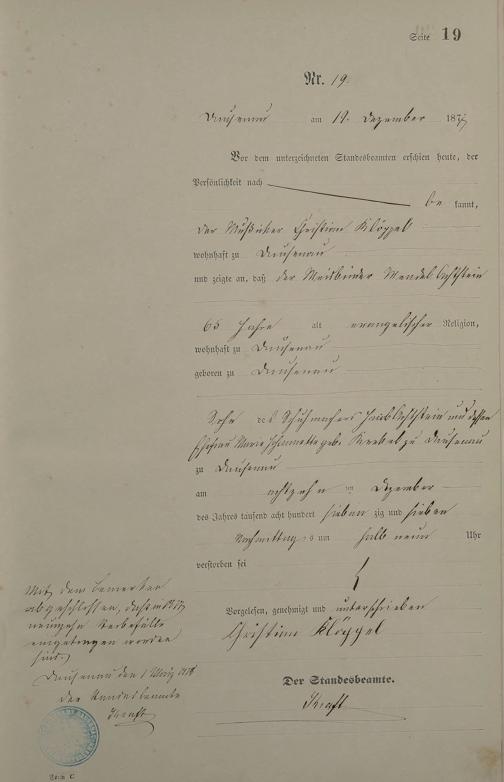 Seite 19
Nr. 19.
Dausenau am 19. Dezember 1877
Vor dem unterzeichneten Standesbeamten erschien heute, der
Persönlichkeit nach
be kannt,
der Christian Klöppel
wohnhaft zu Dausenau
und zeigte an, daß der Wendel
65 Jahre alt evangelischer Religion,
wohnhaft zu Dausenau
geboren zu Dausenau
Sohn des Schuhmachers Jacob und dessen
Ehefrau Maria geb. zu Dausenau
zu Dausenau
am achtzehn ten Dezember
des Jahres tausend acht hundert sieben zig und sieben
Nachmittags um halb neun Uhr
verstorben sei
Vorgelesen, genehmigt und unterschrieben
Christian Klöppel
Der Standesbeamte.
Kraft
Mit dem Bemerken
abgeschlossen, daß in 1877
neunzehn Sterbefälle
eingetragen worden
sind.
Dausenau den 1 1878
Der Standesbeamte
Kraft
Form C